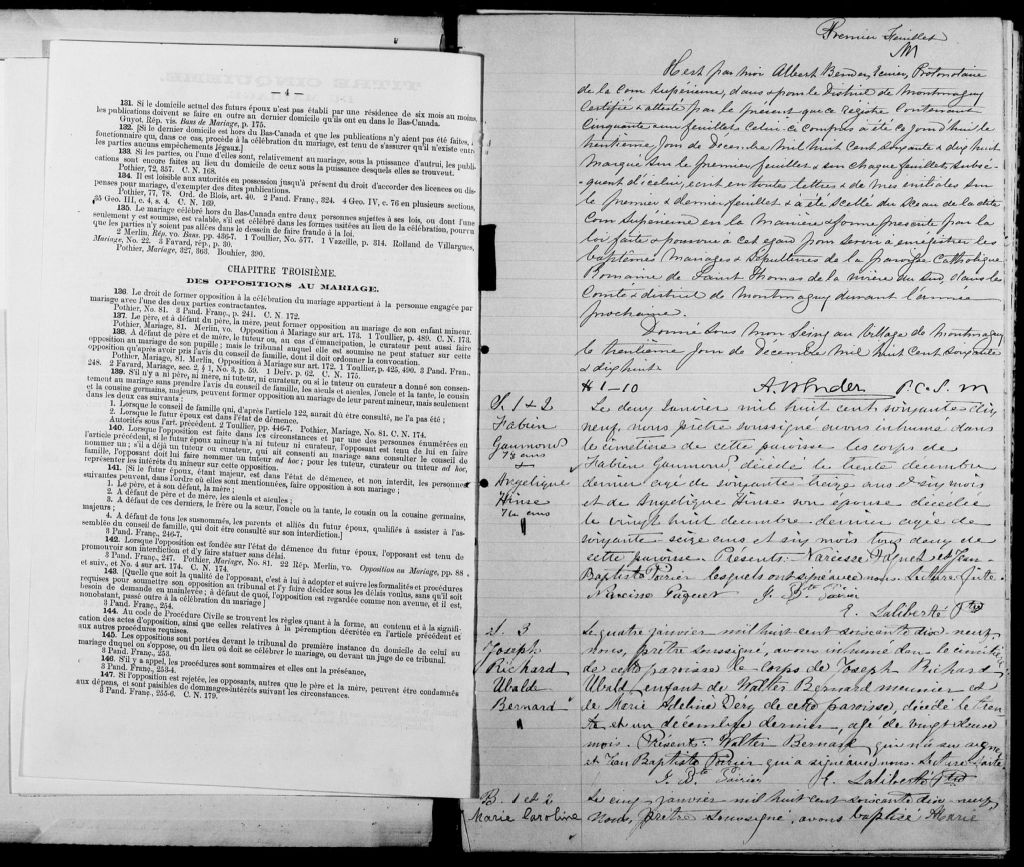 — 4 —
131. Si le domicile actuel des futurs époux n'est pas établi par une résidence de six mois au moins,
les publications doivent se faire en outre au dernier domicile qu'ils ont eu dans le Bas-Canada.
Guyot, Rép. vis. Bans de Mariage, p. 175.
132. [Si le dernier domicile est hors du Bas-Canada et que les publications n'y aient pas été faites, le
fonctionnaire qui, dans ce cas, procède à la célébration du mariage, est tenu de s'assurer qu'il n'existe entre
les parties aucuns empêchements légaux.]
133. Si les parties, ou l'une d'elles sont, relativement au mariage, sous la puissance d'autrui, les publi-
cations sont encore faites au lieu du domicile de ceux sous la puissance desquels elles se trouvent.
Pothier, 72, 357. C. N. 168.
134. Il est loisible aux autorités en possession jusqu'à présent du droit d'accorder des licences ou dis-
penses pour mariage, d'exempter des dites publications.
Pothier, 77, 78. Ord. de Blois, art. 40. 2 Pand. Franç., 324. 4 Geo. IV, c. 76 en plusieurs sections,
35 Geo. III, c. 4, s. 4. C. N. 169.
135. Le mariage célébré hors du Bas-Canada entre deux personnes sujettes à ses lois, ou dont l'une
seulement y est soumise, est valable, s'il est célébré dans les formes usitées au lieu de la célébration, pourvu
que les parties n'y soient pas allées dans le dessein de faire fraude à la loi.
2 Merlin, Rép. vo. Bans. pp. 436-7. 1 Toullier, No. 577. 1 Vazeille, p. 314. Rolland de Villargues,
Mariage, No. 22. 3 Favard, rép., p. 30.
Pothier, Mariage, 327, 363. Bouhier, 390.
CHAPITRE TROISIÈME.
DES OPPOSITIONS AU MARIAGE.
136. Le droit de former opposition à la célébration du mariage appartient à la personne engagée par
mariage avec l'une des deux parties contractantes.
Pothier, No. 81. 3 Pand. Franç., p. 241. C. N. 172.
137. Le père, et à défaut du père, la mère, peut former opposition au mariage de son enfant mineur.
Pothier, Mariage, 81. Merlin, vo. Opposition à Mariage sur art. 173. 1 Toullier, p. 489. C. N. 173.
138. A défaut de père et de mère, le tuteur ou, au cas d'émancipation, le curateur peut aussi faire
opposition au mariage de son pupille; mais le tribunal auquel elle est soumise ne peut statuer sur cette
opposition qu'après avoir pris l'avis du conseil de famille, dont il doit ordonner la convocation.
Pothier, Mariage, 81. Merlin, Opposition à Mariage sur art. 172. 1 Toullier, p. 425, 490. 3 Pand. Fran.,
248. 2 Favard, Mariage, sec. 2, § 1, No. 3, p. 59. 1 Delv. p. 62. C. N. 175.
139. S'il n'y a ni père, ni mère, ni tuteur, ni curateur, ou si le tuteur ou curateur a donné son consen-
tement au mariage sans prendre l'avis du conseil de famille, les aïeuls et aïeules, l'oncle et la tante, le cousin
et la cousine germains, majeurs, peuvent former opposition au mariage de leur parent mineur, mais seulement
dans les deux cas suivants;
1. Lorsque le conseil de famille qui, d'après l'article 122, aurait dû être consulté, ne l'a pas été;
2. Lorsque le futur époux est dans l'état de démence.
Autorités sous l'art. précédent. 2 Toullier, pp. 446-7. Pothier, Mariage, No. 81. C. N. 174.
140. Lorsque l'opposition est faite dans les circonstances et par une des personnes énumérées en
l'article précédent, si le futur époux mineur n'a ni tuteur ni curateur, l'opposant est tenu de lui en faire
nommer un; s'il a déjà un tuteur ou curateur, qui ait consenti au mariage sans consulter le conseil de
famille, l'opposant doit lui faire nommer un tuteur ad hoc; pour les tuteur, curateur ou tuteur ad hoc,
représenter les intérêts du mineur sur cette opposition.
141. [Si le futur époux, étant majeur, est dans l'état de démence, et non interdit, les personnes
suivantes peuvent, dans l'ordre où elles sont mentionnées, faire opposition à son mariage;
1. Le père, et à son défaut, la mère;
2. A défaut de père et de mère, les aïeuls et aïeules;
3. A défaut de ces derniers, le frère ou la sœur, l'oncle ou la tante, le cousin ou la cousine germains,
majeurs;
4. A défaut de tous les susnommés, les parents et alliés du futur époux, qualifiés à assister à l'as-
semblée du conseil de famille, qui doit être consulté sur son interdiction.]
3 Pand. Franç., 246-7.
142. Lorsque l'opposition est fondée sur l'état de démence du futur époux, l'opposant est tenu de
promouvoir son interdiction et d'y faire statuer sans délai.
3 Pand. Franç., 247. Pothier, Mariage, No. 81. 22 Rép. Merlin, vo. Opposition au Mariage, pp. 88
et suiv., et No. 4 sur art. 174. C. N. 174.
143. [Quelle que soit la qualité de l'opposant, c'est à lui à adopter et suivre les formalités et procédures
requises pour soumettre son opposition au tribunal et l'y faire décider sous les délais voulus, sans qu'il soit
besoin de demande en mainlevée; à défaut de quoi, l'opposition est regardée comme non avenue, et il est,
nonobstant, passé outre à la célébration du mariage.]
3 Pand. Franç., 254.
144. Au code de Procédure Civile se trouvent les règles quant à la forme, au contenu et à la signifi-
cation des actes d'opposition, ainsi que celles relatives à la péremption décrétée en l'article précédent et
aux autres procédures requises.
145. Les oppositions sont portées devant le tribunal de première instance du domicile de celui au
mariage duquel on s'oppose, ou du lieu où doit se célébrer le mariage, ou devant un juge de ce tribunal.
3 Pand. Franç., 253.
146. S'il y a appel, les procédures sont sommaires et elles ont la préséance,
3 Pand. Franç., 253-4.
147. Si l'opposition est rejetée, les opposants, autres que le père et la mère, peuvent être condamnés
aux dépens, et sont passibles de dommages-intérêts suivant les circonstances.
3 Pand. Franç., 255-6. C. N. 179.
Premier Feuillet
M
par moi Albert Bender, Ecuier, Protonotaire
de la Cour Supérieure, dans & pour le District de Montmagny
Certifié & attesté par le présent que ce Régistre Contenant
Cinquante feuillets celui-ci compris a été ce jourd'hui le
trentième jour de Décembre Mil huit Cent Soixante & dix huit
Marqué sur le premier feuillet & sur chaque feuillet subsé-
-quent d'icelui, en toutes lettres & de Mes initiales sur
le premier & dernier feuillet & a été Scellé du Sceau de la dite
Cour Supérieure en la Manière & forme présenté par la
loi faite & pourvue à cet égard pour Servir à enregistrer les
baptêmes Mariages & Sépultures de la paroisse Catholique
Romaine de Saint Thomas de la rivière du Sud, dans le
Comté & district de Montmagny durant l'année
prochaine.
Donné Sous Mon Seing au Village de Montmagny
le trentième jour de Décembre Mil huit Cent Soixante
& dix huit.
# 1-10 A Bender P. C. S. M
S. 1 & 2
Fabien
Gaumond
78 ans
+
Angelique
Hinse
76 ans
Le deux Janvier mil huit cent soixante dix
neuf, nous prêtre soussigné avons inhumé dans
le cimetière de cette paroisse les corps de
Fabien Gaumond, décédé le trente décembre
dernier agé de soixante-treize ans & six mois
et de Angelique Hinse son épouse décédée
le vingt huit décembre dernier agée de
soixante-seize ans et six mois tous deux de
cette paroisse. Présents. Narcisse Paquet et Jean
Baptiste Poirier lesquels ont signé avec nous. Lecture faite
Narcisse Paquet J. Bte Poirier
E. Laliberté Ptre
S. 3
Joseph
Richard
Ubald
Bernard
Le quatre janvier mil huit cent soixante dix neuf
nous, prêtre soussigné, avons inhumé dans le cimetiè
de cette paroisse le corps de Joseph Richard
Ubald, enfant de Walter Bernard meunier et
de Marie Adeline Dery de cette paroisse, décédé le tren
te et un décembre dernier, agé de vingt deux
mois. Présent: Walter Bernard qui n'a su signer
et Jean Baptiste Poirier qui a signé avec nous. Lecture faite
J. Bte Poirier E. Laliberté Ptre
B. 1 et 2
Marie Caroline
Le cinq janvier mil huit cent soixante dix neuf
nous, prêtre soussigné, avons baptisé Marie